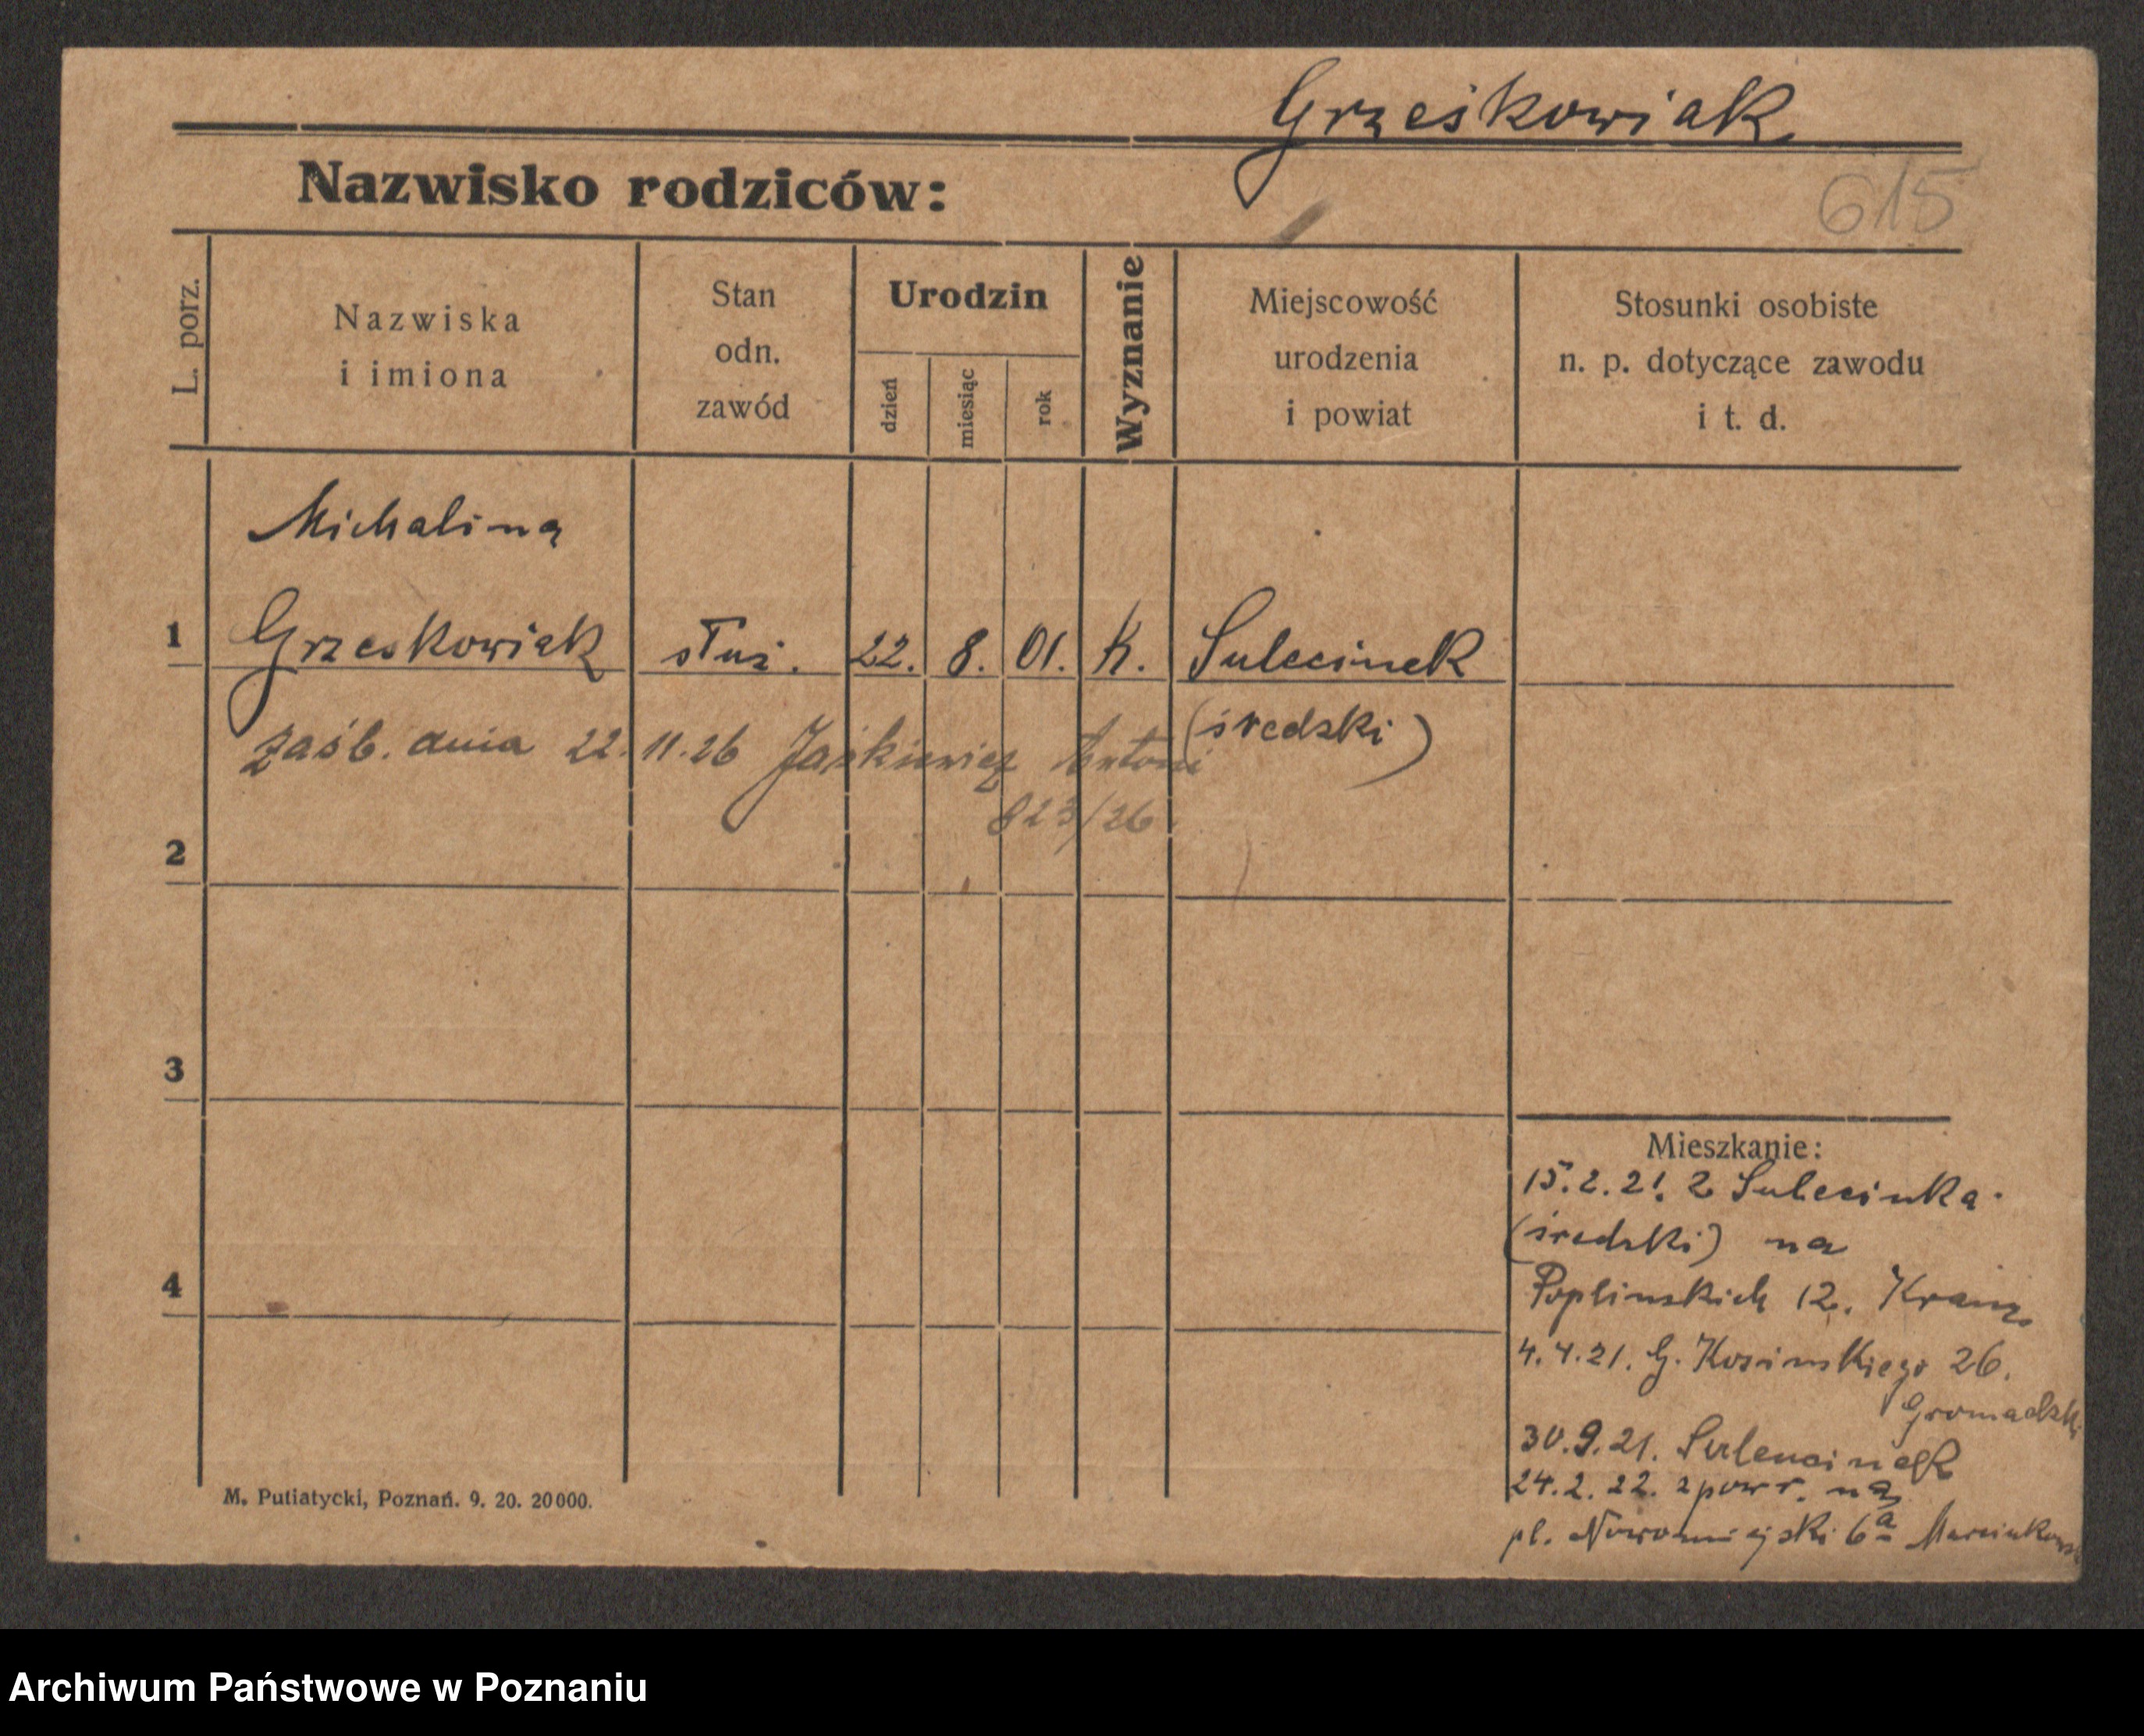 Grześkowiak
Nazwisko rodziców:
615
L. porz.
Nazwiska
i imiona
Stan
odn.
zawód
Urodzin
dzień
miesiąc
rok
Wyznanie
Miejscowość
urodzenia
i powiat
Stosunki osobiste
n. p. dotyczące zawodu
i t. d.
Michalina
1 Grzeskowiak służ. 22. 8. 01. K. Sulecinek
(średzki)
zaśb. dnia 22.11.26 Jaśkiewicz Antoni
823/26.
2
3
4
Mieszkanie:
15.2.21. z Sulecinka
(średzki) na
Poplinskich 12. Kranz.
4.4.21. G. Kosinskiego 26.
Gromadzki
30.9.21. Sulencinek
24.2.22. z powr. na
pl. Nowomiejski 6a
M. Putiatycki, Poznań. 9. 20. 20000.
Archiwum Państwowe w Poznaniu